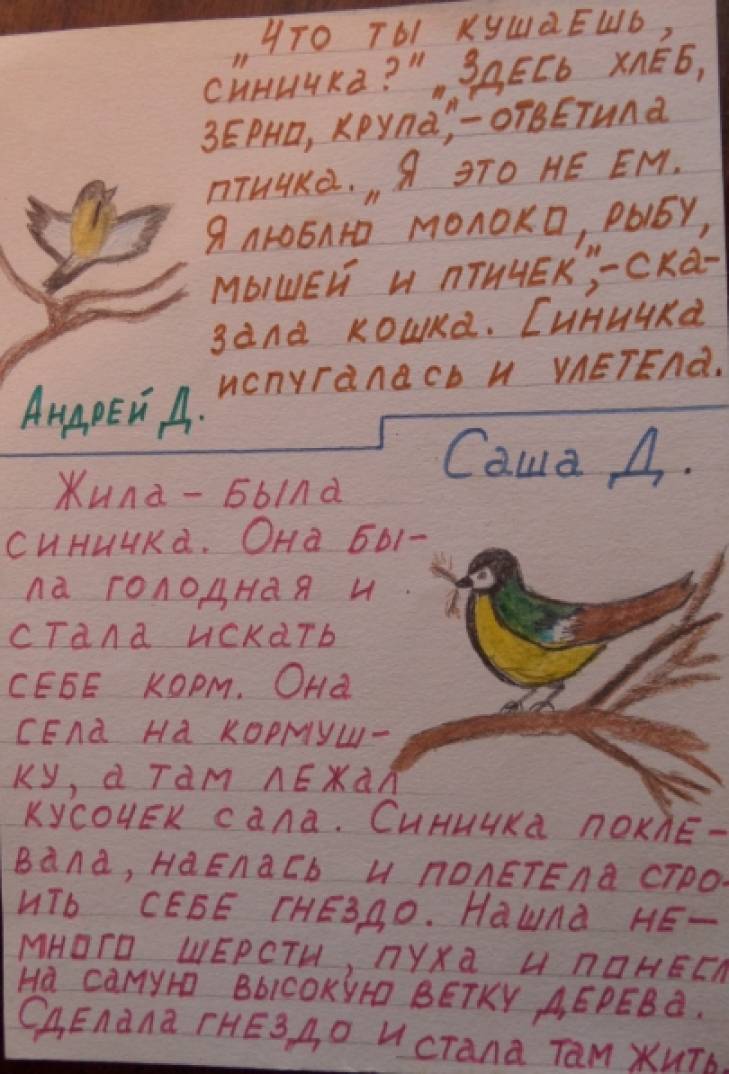 „Что ты кушаешь,
синичка?" „Здесь хлеб,
зерно, крупа",- ответила
птичка. „Я это не ем.
Я люблю молоко, рыбу,
мышей и птичек",- ска-
зала кошка. Синичка
испугалась и улетела.
Андрей Д.
Саша Д.
Жила - была
синичка. Она бы-
ла голодная и
стала искать
себе корм. Она
села на кормуш-
ку, а там лежал
кусочек сала. Синичка покле-
вала, наелась и полетела стро-
ить себе гнездо. Нашла не-
много шерсти, пуха и понесл
на самую высокую ветку дерева.
Сделала гнездо и стала там жить.